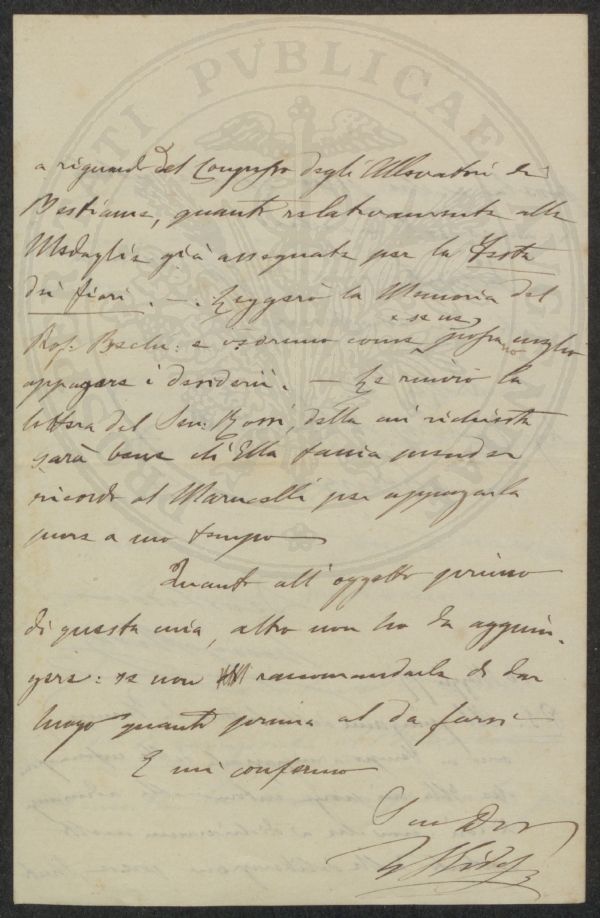 PROSPERITATI PVBLICAE
a riguardo del Congresso degli Allevatori di
Bestiame, quanto relativamente alla
Medaglia già assegnata per la Festa
dei fiori. — Leggerò la Memoria del
Prof. Bechi: e vedremo come se ne possano meglio
appagare i desiderii. — Le rinvio la
lettera del Sen: Rossi, della cui richiesta
sarà bene ch'Ella faccia prender
ricordo al Marucelli per appagarla
pure a suo tempo
Quanto all'oggetto primo
di questa mia, altro non ho da aggiun-
gere: se non raccomandarle di dar
luogo quanto prima al da farsi
E mi confermo
Suo Dev